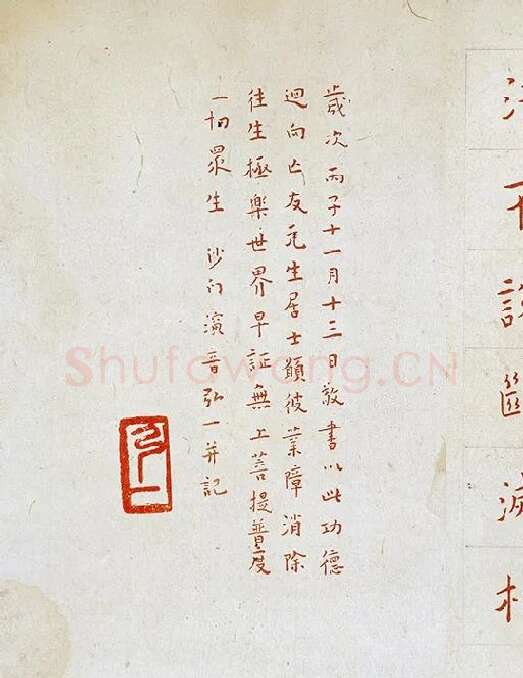 法不說斷滅相
歲次丙子十一月十三日敬書以此功德
迴向亡友生居士願彼業障消除
往生極樂世界早証無上菩提普度
一切眾生 沙門演音弘一并記
弘一
Shufawang.CN